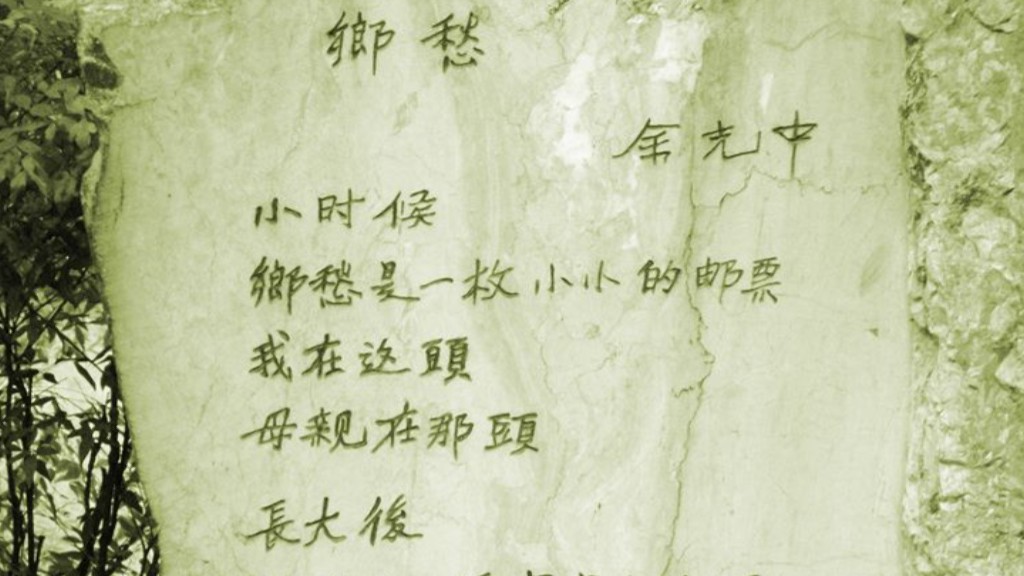 鄉愁
余光中
小时候
鄉愁是一枚小小的邮票
我在这頭
母亲在那頭
長大後